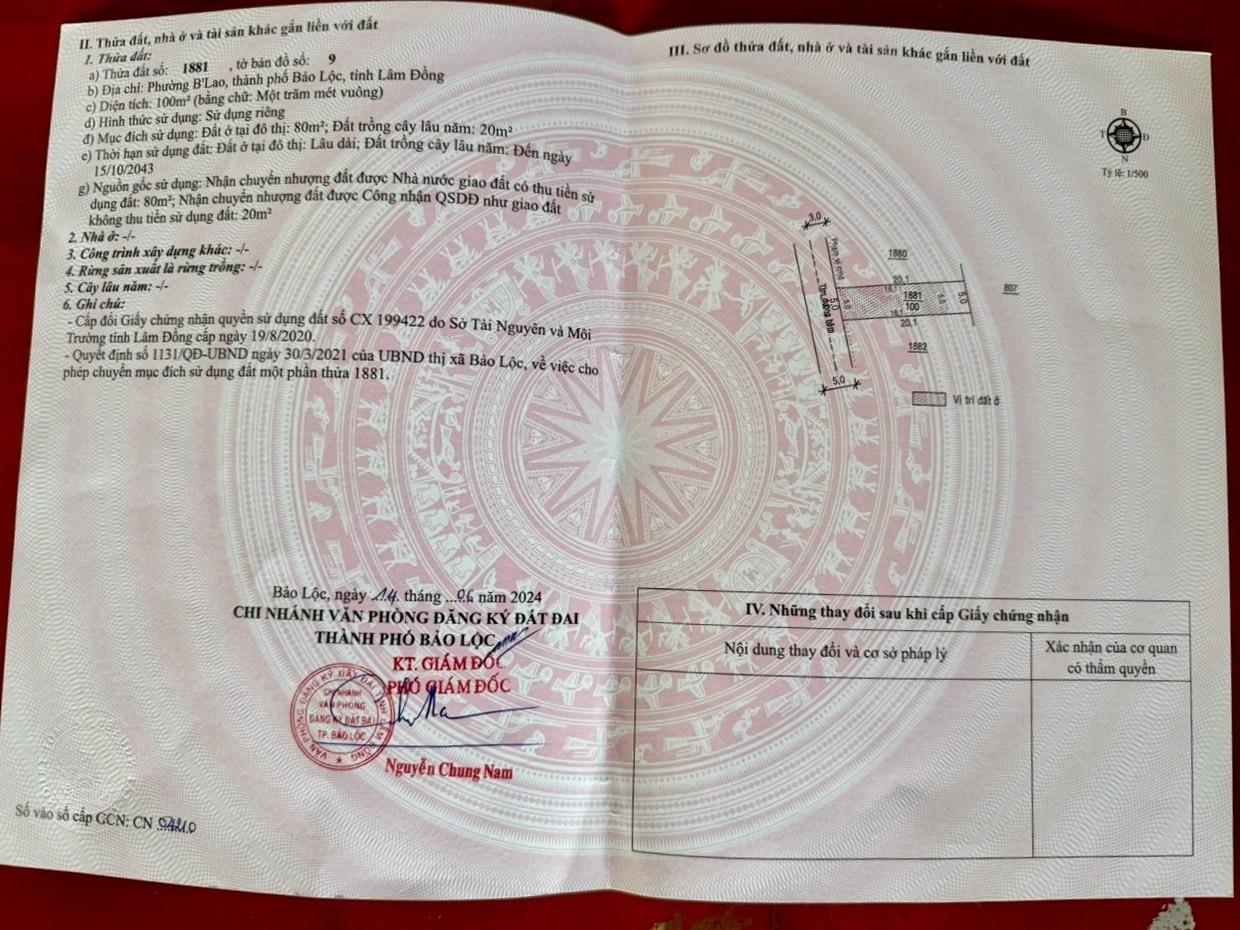 II. Thửa đất, nhà ở và tài sản khác gắn liền với đất
1. Thửa đất:
a) Thửa đất số: 1881 , tờ bản đồ số: 9
b) Địa chỉ: Phường B'Lao, thành phố Bảo Lộc, tỉnh Lâm Đồng
c) Diện tích: 100m² (bằng chữ: Một trăm mét vuông)
d) Hình thức sử dụng: Sử dụng riêng
đ) Mục đích sử dụng: Đất ở tại đô thị: 80m²; Đất trồng cây lâu năm: 20m²
e) Thời hạn sử dụng đất: Đất ở tại đô thị: Lâu dài; Đất trồng cây lâu năm: Đến ngày
15/10/2043
g) Nguồn gốc sử dụng: Nhận chuyển nhượng đất được Nhà nước giao đất có thu tiền sử
dụng đất: 80m²; Nhận chuyển nhượng đất được Công nhận QSDĐ như giao đất
không thu tiền sử dụng đất: 20m²
2. Nhà ở: -/-
3. Công trình xây dựng khác: -/-
4. Rừng sản xuất là rừng trồng: -/-
5. Cây lâu năm: -/-
6. Ghi chú:
- Cấp đổi Giấy chứng nhận quyền sử dụng đất số CX 199422 do Sở Tài Nguyên và Môi
Trường tỉnh Lâm Đồng cấp ngày 19/8/2020.
- Quyết định số 1131/QĐ-UBND ngày 30/3/2021 của UBND thị xã Bảo Lộc, về việc cho
phép chuyển mục đích sử dụng đất một phần thửa 1881.
Bảo Lộc, ngày 14 tháng 06 năm 2024
CHI NHÁNH VĂN PHÒNG ĐĂNG KÝ ĐẤT ĐAI
THÀNH PHỐ BẢO LỘC
KT. GIÁM ĐỐC
PHÓ GIÁM ĐỐC
VĂN PHÒNG ĐĂNG KÝ ĐẤT ĐAI TỈNH LÂM ĐỒNG
CHI NHÁNH
VĂN PHÒNG
ĐĂNG KÝ ĐẤT ĐAI
TP. BẢO LỘC
Nguyễn Chung Nam
Số vào sổ cấp GCN: CN
III. Sơ đồ thửa đất, nhà ở và tài sản khác gắn liền với đất
B
T Đ
N
Tỷ lệ: 1/500
3,0
1880
20,1
18,1
1881
100
5,0
5,0
5,0
5,0
18,1
20,1
807
1882
Tim đường hẻm
5,0
Vị trí đất ở
IV. Những thay đổi sau khi cấp Giấy chứng nhận
Nội dung thay đổi và cơ sở pháp lý
Xác nhận của cơ quan
có thẩm quyền